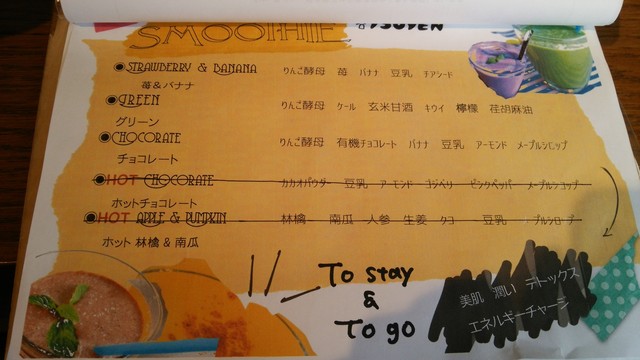 SMOOTHIE
STRAWBERRY & BANANA りんご酵母 苺 バナナ 豆乳 チアシード
苺&バナナ
GREEN りんご酵母 ケール 玄米甘酒 キウイ 檸檬 荏胡麻油
グリーン
CHOCORATE りんご酵母 有機チョコレート バナナ 豆乳 アーモンド メープルシロップ
チョコレート
HOT CHOCORATE カカオパウダー 豆乳 アーモンド ゴジベリー ピンクペッパー メープルシロップ
ホットチョコレート
HOT APPLE & PUMPKIN 林檎 南瓜 人参 生姜 豆乳
ホット 林檎 & 南瓜
To stay
&
To go
美肌 潤い デトックス
エネルギーチャージ